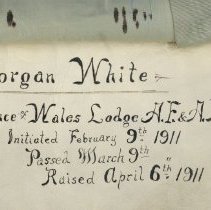 organ White
nce of Wales Lodge A.F. & A.
Initiated February 9th 1911
Passed March 9th "
Raised April 6th 1911